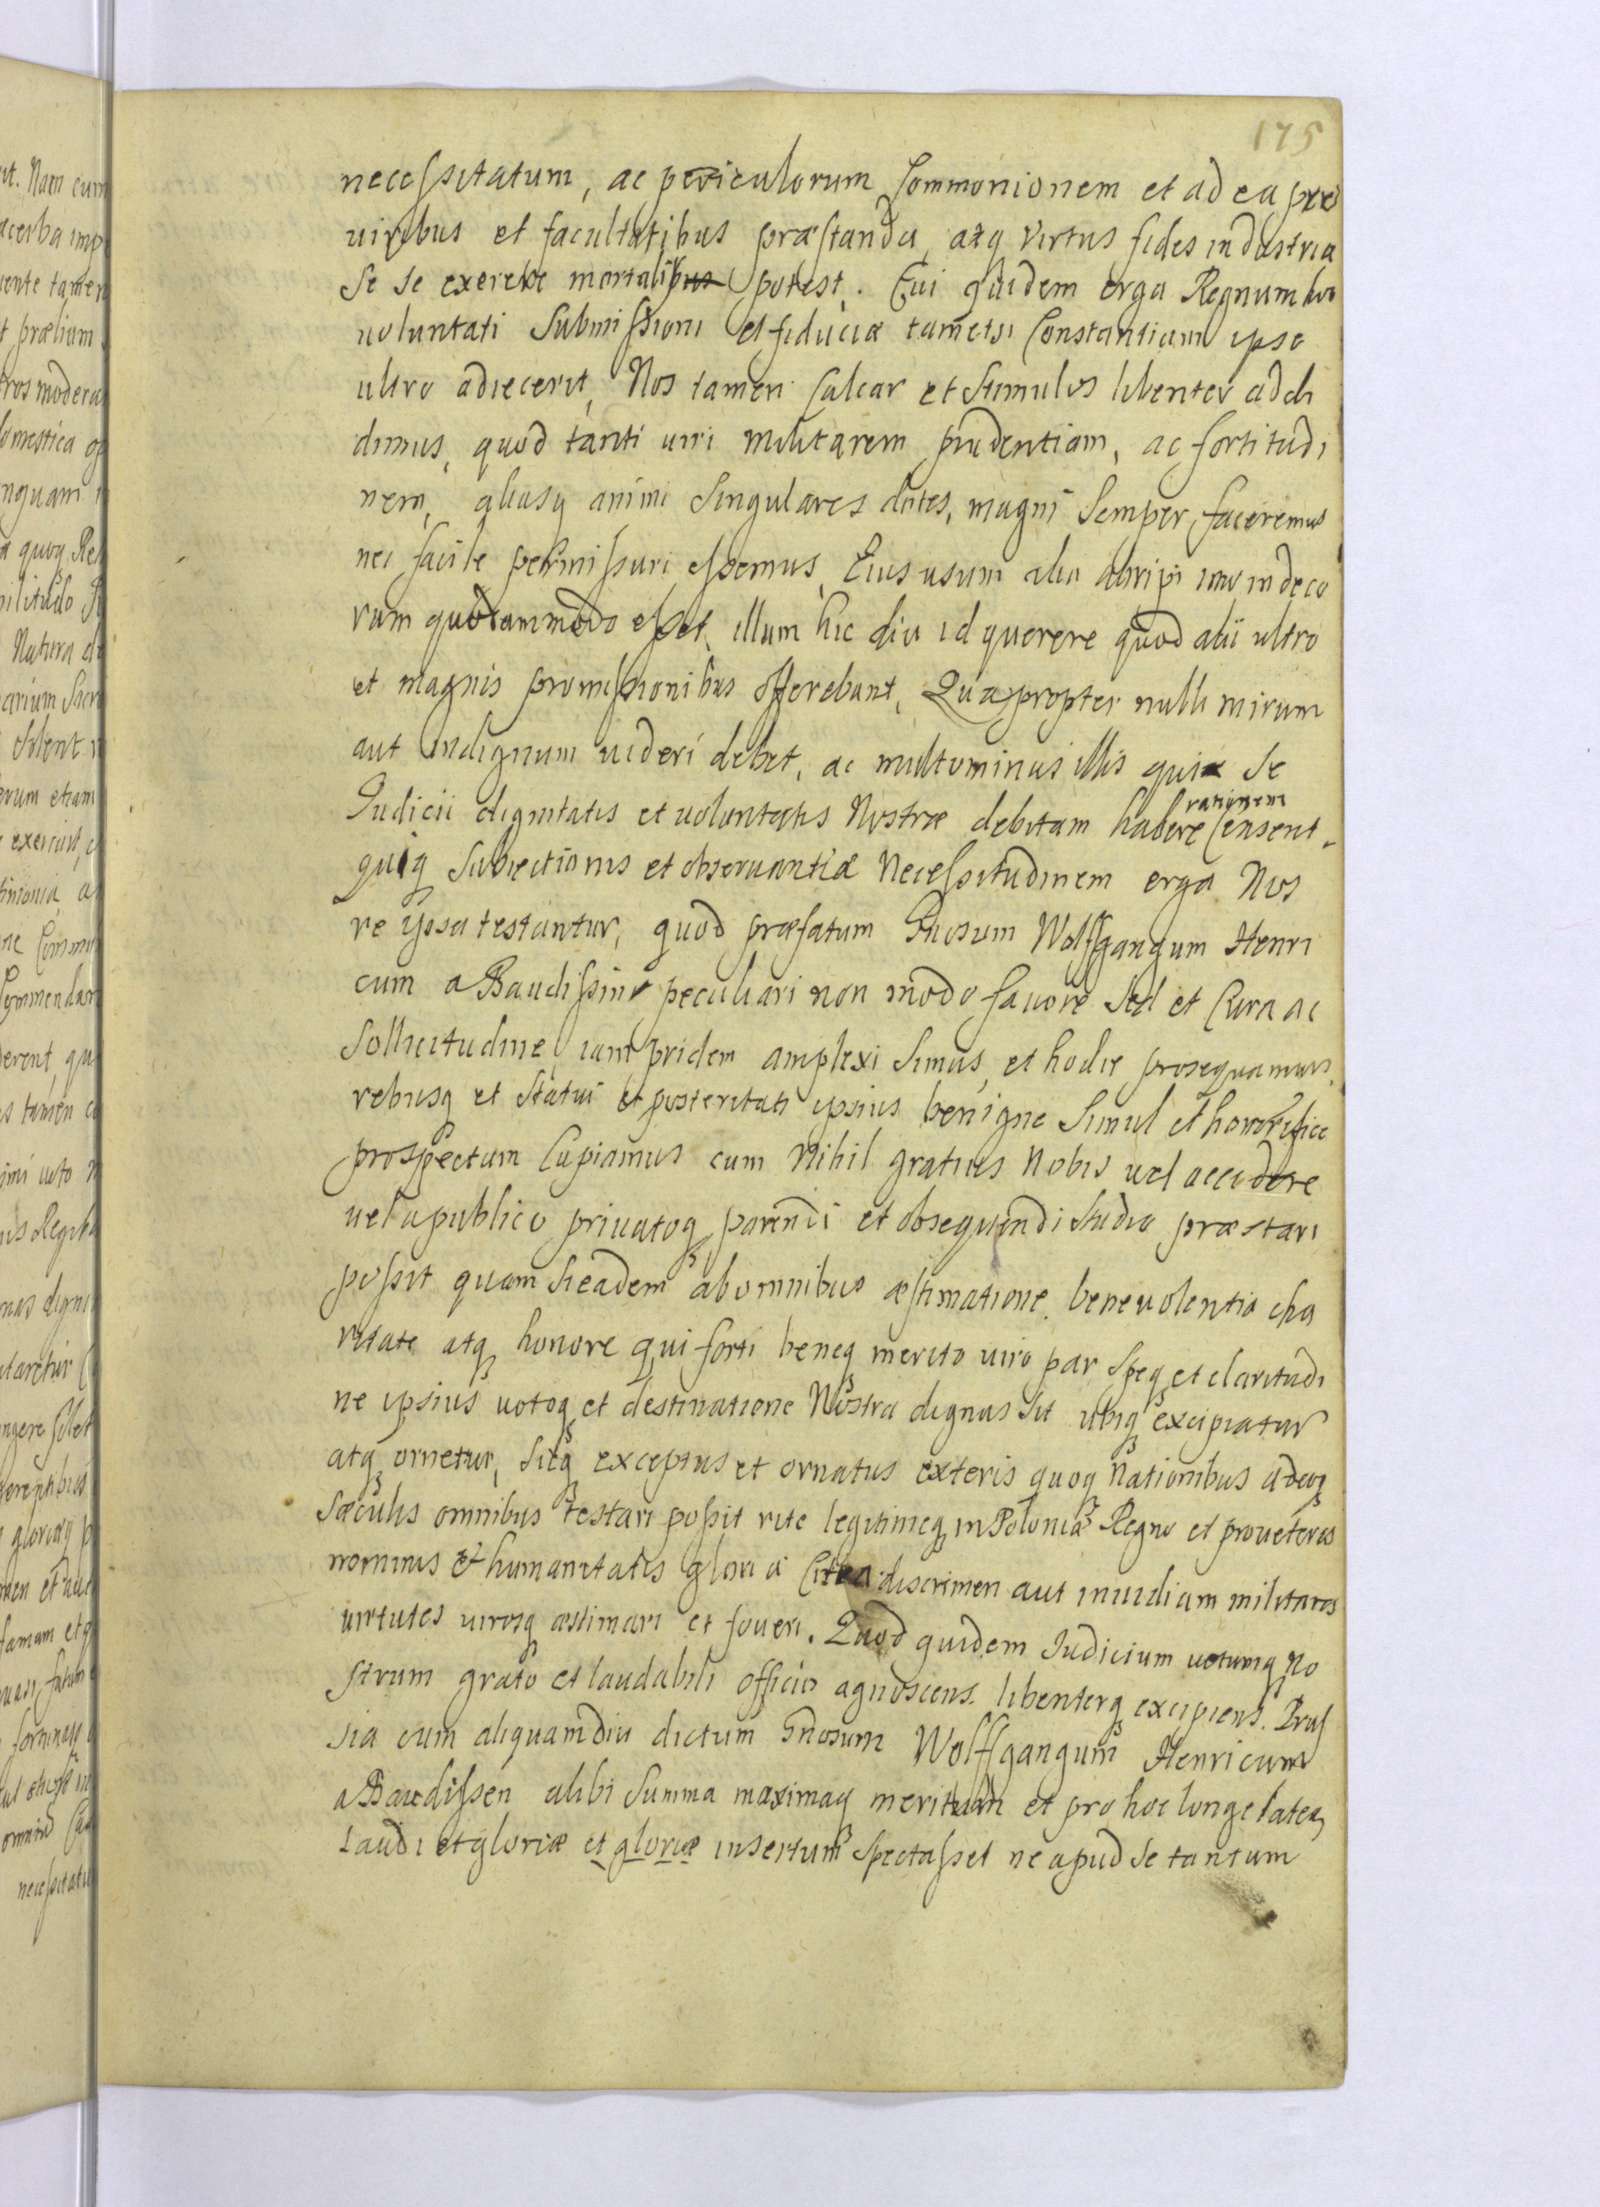 175
necessitatum, ac periculorum Commonionem et ad ea pro
viribus et facultatibus præstanda, atq virtus fides industria
se se exerere mortalibus potest. Cui quidem erga Regnum hoc
voluntati submissioni et fiduciæ tametsi Constantiam ipse
ultro adiecerit, Nos tamen Calcar et stimulos libenter addi
dimus, quod tanti uiri militarem prudentiam, ac fortitudi
nem, aliasq animi singulares dotes, magni semper faceremus
nec facile permissuri essemus, Eius usum alio abripi imo indeco
rum quodammodo esset, illum hic diu id querere quod alii ultro
et magnis promissionibus offerebant, Quapropter nulli mirum
aut indignum uideri debet, ac multominus illis qui se
Iudicii dignitatis et uoluntatis Nostræ debitam habere rationem Censent,
quiq subiectionis et obseruantiæ Necessitudinem erga Nos
re ipsa testantur, quod præfatum Gnosum Wolffgangum Henri
cum a Baudissin peculiari non modo fauore sed et Cura ac
sollicitudine, iam pridem amplexi simus, et hodie prosequamur,
rebusq et statui et posteritati ipsius benigne simul et honorifice
prospectum Cupiamus cum Nihil gratius Nobis uel accidere
uel a publico priuatoq parendi et obsequendi studio præstari
possit quam si eadem ab omnibus æstimatione, beneuolentia cha
ritate atq honore qui forti beneq merito uiro par speq et claritudi
ne ipsius uotoq et destinatione Nostra dignus sit ubiq excipiatur
atq ornetur, sicq exceptus et ornatus exteris quoq nationibus adeoq
sæculis omnibus testari possit rite legitimeq in Polonia Regno et pro ueteris
nominis et humanitatis gloria Citra discrimen aut inuidiam militares
uirtutes uirosq æstimari et foueri. Quod quidem Iudicium uotumq No
strum grato et laudabili officio agnoscens libenterq excipiens Prus
sia cum aliquamdiu dictum Gnosum Wolffgangum Henricum
a Baudissen alibi summa maximaq meritum et pro hoc longe lateq
laudi et gloriæ et gloriæ insertum spectasset ne apud se tantum